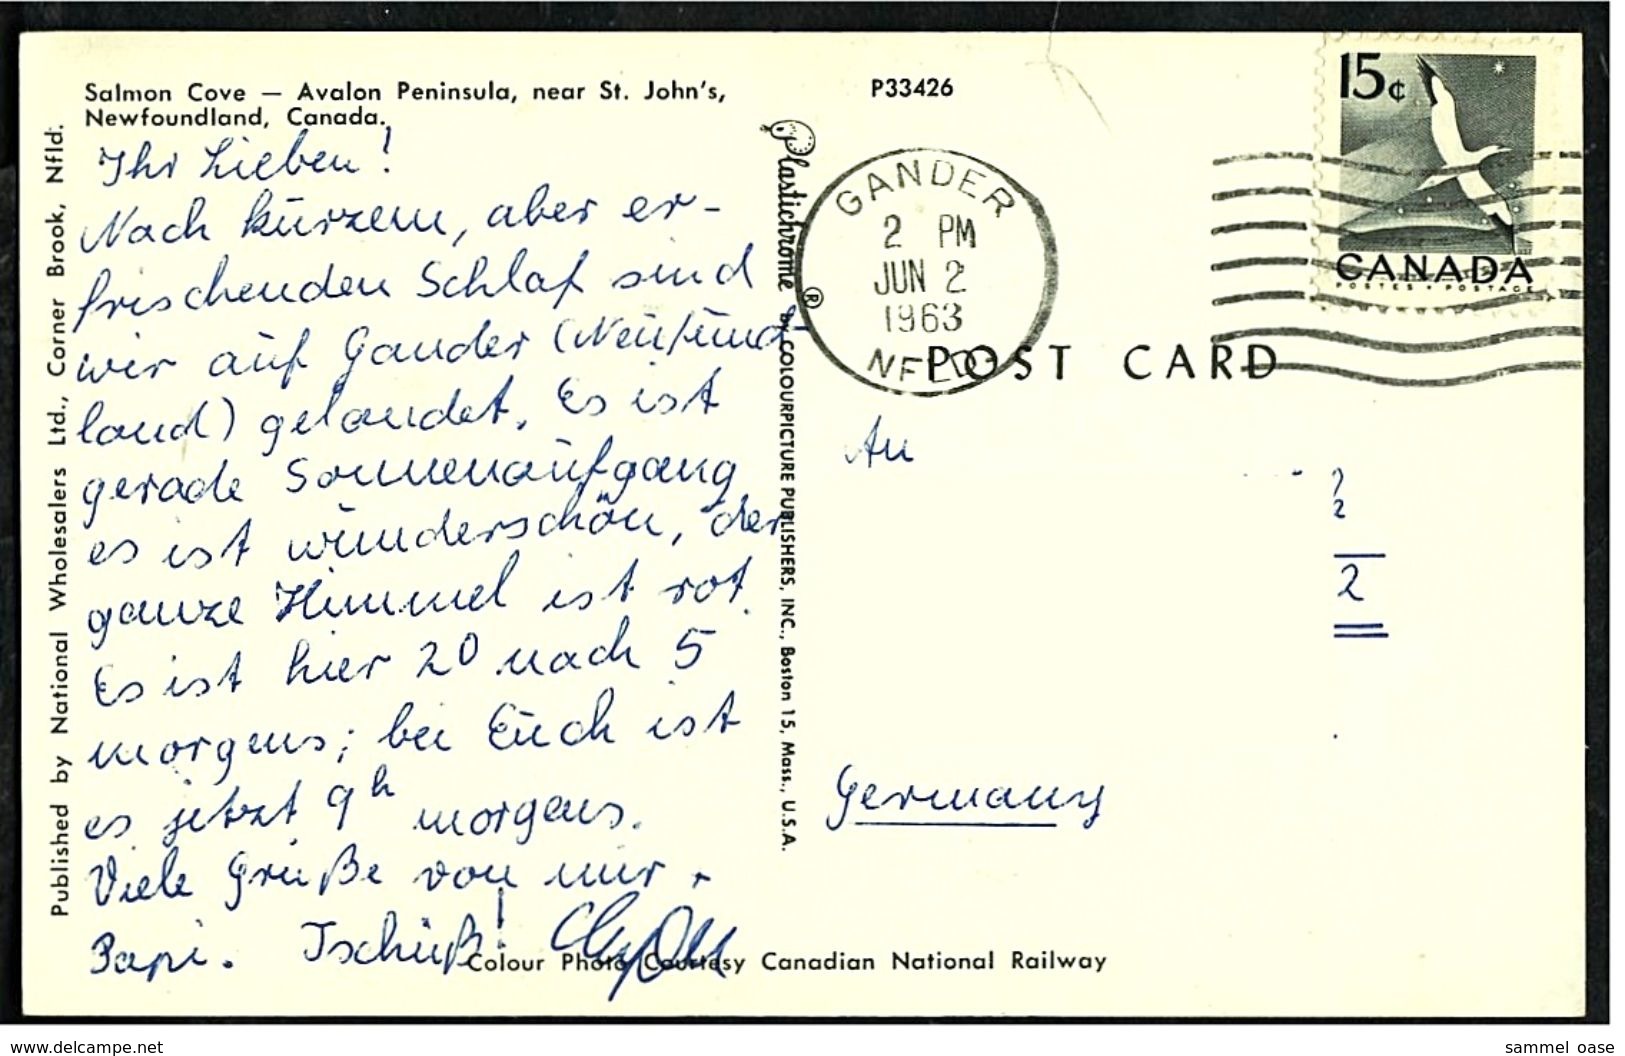 Salmon Cove — Avalon Peninsula, near St. John's,
Newfoundland, Canada.
P33426
Ihr Lieben!
Nach kurzem, aber er-
frischenden Schlaf sind
wir auf Gander (Neufund
land) gelandet. Es ist
gerade Sonnenaufgang
es ist wunderschön, der
ganze Himmel ist rot.
Es ist hier 20 nach 5
morgens; bei Euch ist
es jetzt 9h morgens.
Viele Grüße von mir
Papi. Tschüß!
Colour Photo Courtesy Canadian National Railway
Published by National Wholesalers Ltd., Corner Brook, Nfld.
Plastichrome ® by COLOURPICTURE PUBLISHERS, INC., Boston 15, Mass., U.S.A.
GANDER
2 PM
JUN 2
1963
NFLD
15¢
CANADA
POSTES • POSTAGE
POST CARD
An
?
2
2
Germany
www.delcampe.net
sammel_oase